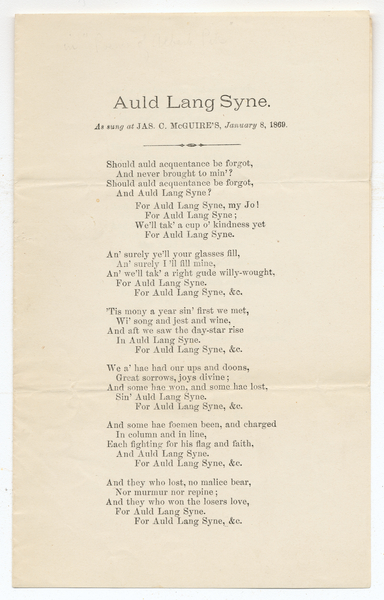 Auld Lang Syne.
As sung at JAS. C. McGUIRE'S, January 8, 1869.
Should auld acquentance be forgot,
And never brought to min'?
Should auld acquentance be forgot,
And Auld Lang Syne?
For Auld Lang Syne, my Jo!
For Auld Lang Syne;
We'll tak' a cup o' kindness yet
For Auld Lang Syne.
An' surely ye'll your glasses fill,
An' surely I'll fill mine,
An' we'll tak' a right gude willy-wought,
For Auld Lang Syne.
For Auld Lang Syne, &c.
'Tis mony a year sin' first we met,
Wi' song and jest and wine,
And aft we saw the day-star rise
In Auld Lang Syne.
For Auld Lang Syne, &c.
We a' hae had our ups and doons,
Great sorrows, joys divine;
And some hae won, and some hae lost,
Sin' Auld Lang Syne.
For Auld Lang Syne, &c.
And some hae foemen been, and charged
In column and in line,
Each fighting for his flag and faith,
And Auld Lang Syne.
For Auld Lang Syne, &c.
And they who lost, no malice bear,
Nor murmur nor repine;
And they who won the losers love,
For Auld Lang Syne.
For Auld Lang Syne, &c.